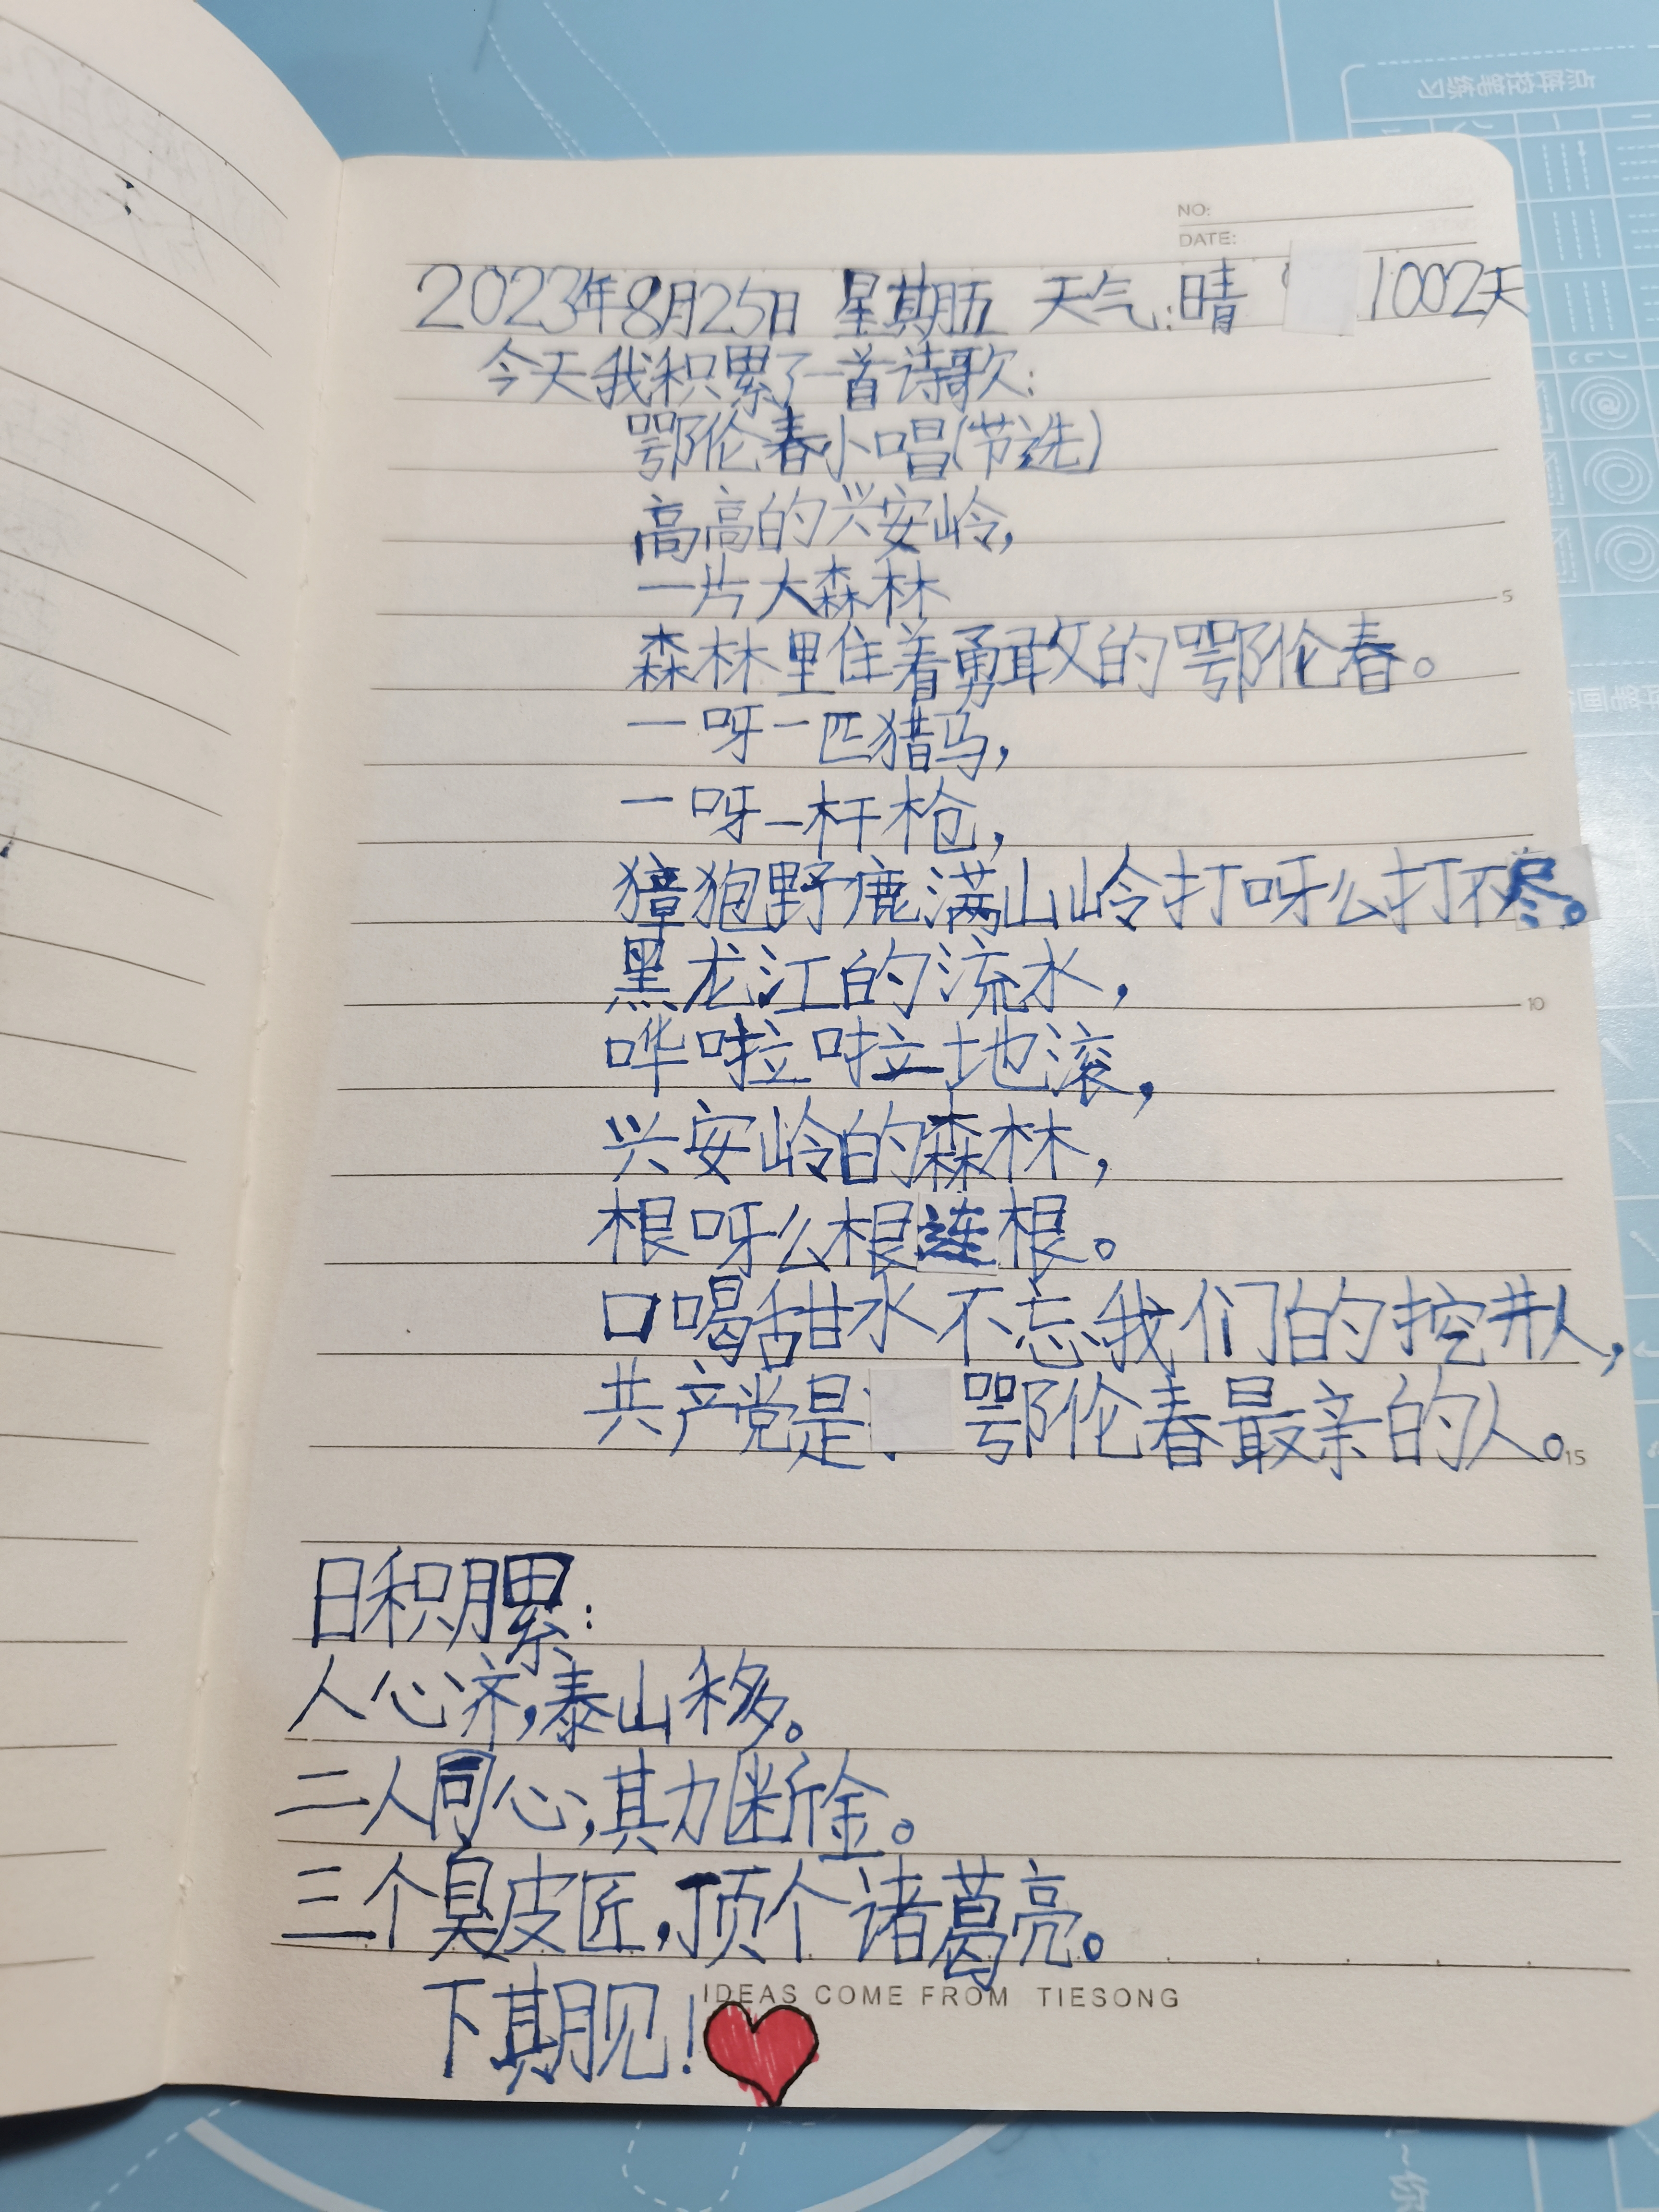 NO:
DATE:
2023年8月25日 星期五 天气:晴 1002天
今天我积累了一首诗歌:
鄂伦春小唱(节选)
高高的兴安岭,
一片大森林
森林里住着勇敢的鄂伦春。
一呀一匹猎马,
一呀一杆枪,
獐狍野鹿满山岭打呀么打不尽。
黑龙江的流水,
哗啦啦地滚,
兴安岭的森林,
根呀么根连根。
口喝甜水不忘我们的挖井人,
共产党是 鄂伦春最亲的人。
日积月累:
人心济,泰山移。
二人同心,其力断金。
三个臭皮匠,顶个诸葛亮。
下期见!
IDEAS COME FROM TIESONG
5
10
15